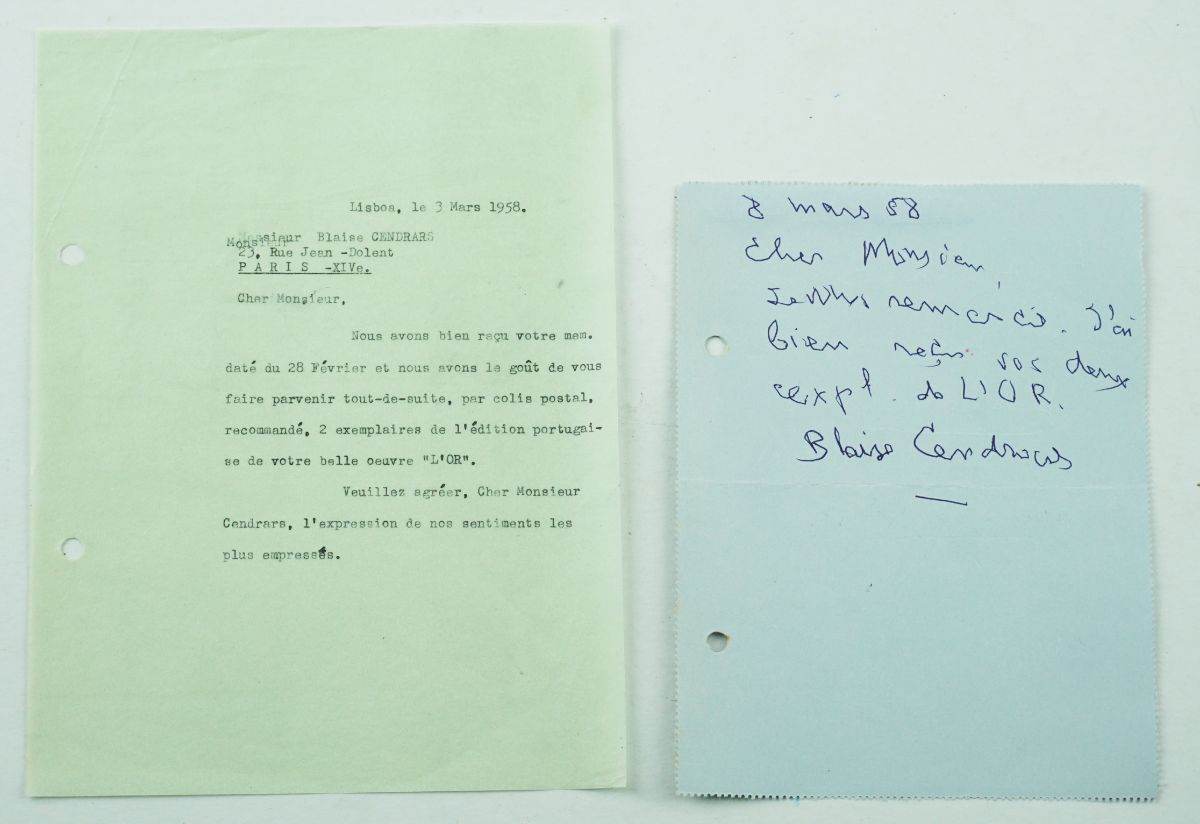 Lisboa, le 3 Mars 1958.
Monsieur Blaise CENDRARS
Monsieur
23, Rue Jean -Dolent
PARIS -XIVe.
Cher Monsieur,
Nous avons bien reçu votre mem.
daté du 28 Février et nous avons le goût de vous
faire parvenir tout-de-suite, par colis postal,
recommandé, 2 exemplaires de l'édition portugai-
se de votre belle oeuvre "L'OR".
Veuillez agréer, Cher Monsieur
Cendrars, l'expression de nos sentiments les
plus empressés.
8 mars 58
Cher Monsieur,
Je vous remercie. J'ai
bien reçu vos deux
expl. de L'OR.
Blaise Cendrars